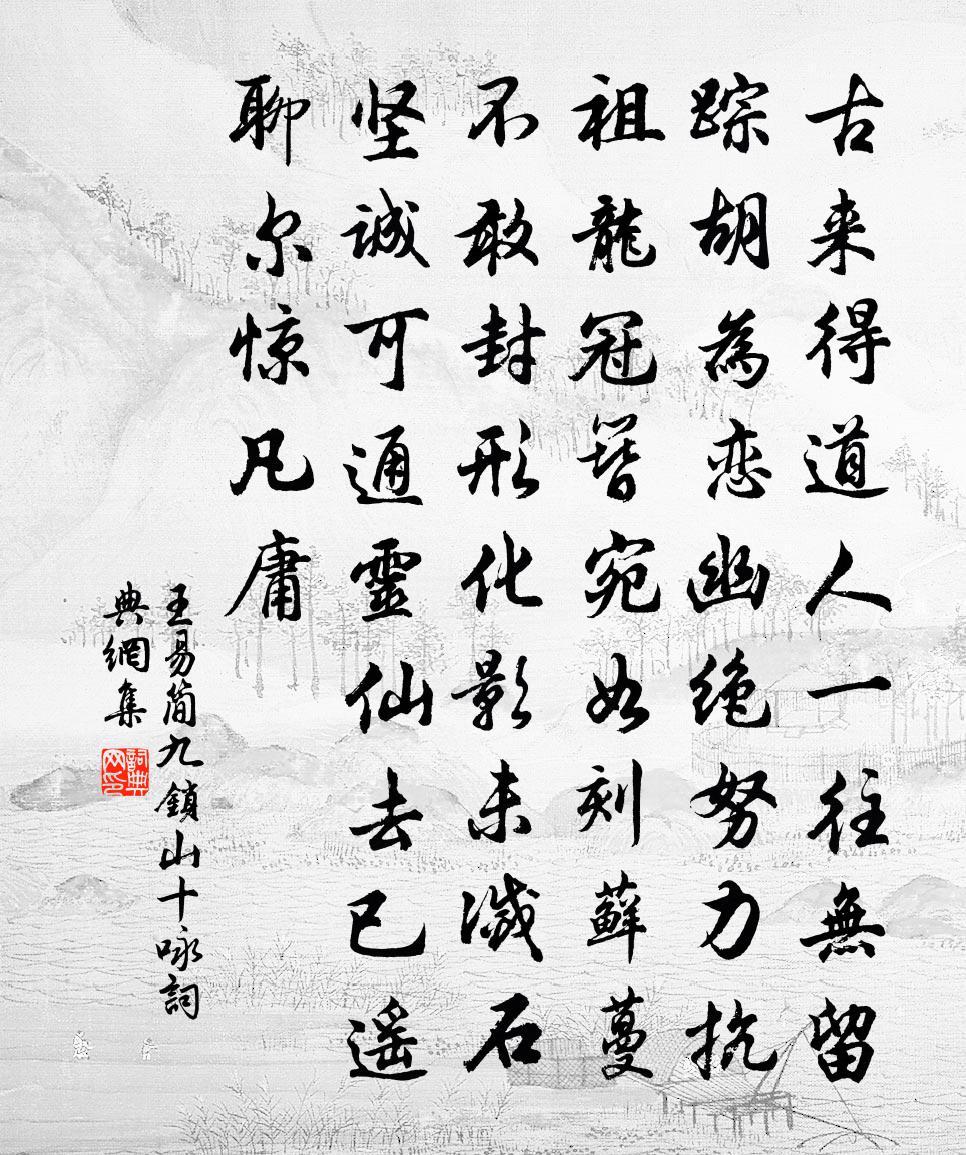 古来得道人一往無留
踪胡為恋幽绝努力抗
祖龍冠簪宛如刻蘚蔓
不敢封形化影未滅石
坚诚可通靈仙去已遥
聊尔惊凡庸
王易简九鎖山十咏詞
典網集
詞典
网印